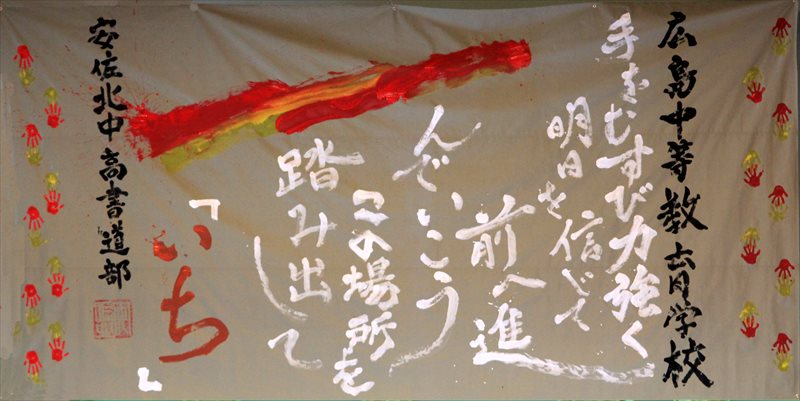 広島中等教育学校
手をむすび力強く
明日を信じて
前へ進
んでいこう
この場所を
踏み出して
「いち」
安佐北中高書道部